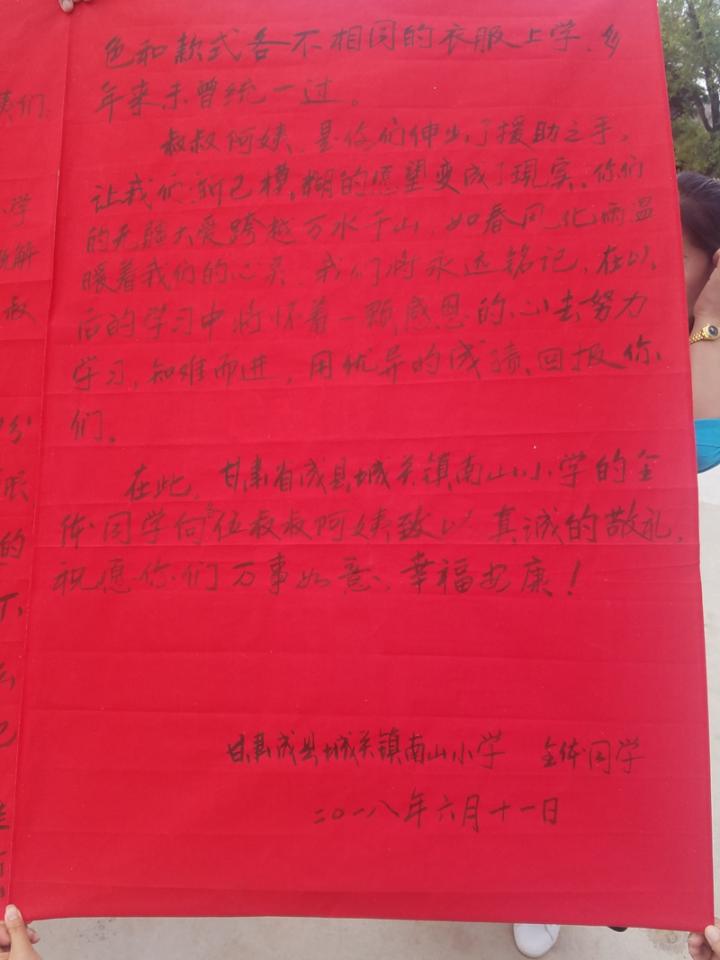 色和款式各不相同的衣服上学,多
年来未曾统一过。
叔叔阿姨,是你们伸出了援助之手,
让我们渐已模糊的愿望变成了现实。你们
的无疆大爱跨越万水千山,如春风化雨温
暖着我们的心灵,我们将永远铭记,在以
后的学习中将怀着一颗感恩的心去努力
学习,知难而进,用优异的成绩回报你
们。
在此,甘肃省成县城关镇南山小学的全
体同学向各位叔叔阿姨致以真诚的敬礼,
祝愿你们万事如意、幸福安康!
甘肃成县城关镇南山小学 全体同学
二0一八年六月十一日